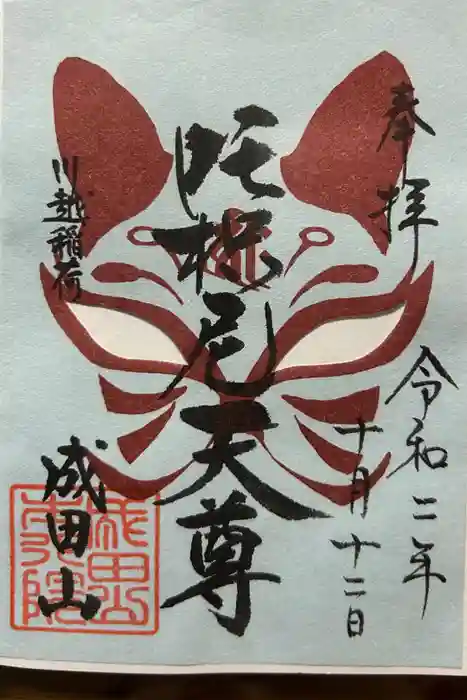 奉拝
令和二年
十月十二日
吒枳尼天尊
川越稲荷
成田山
成田山
本行院